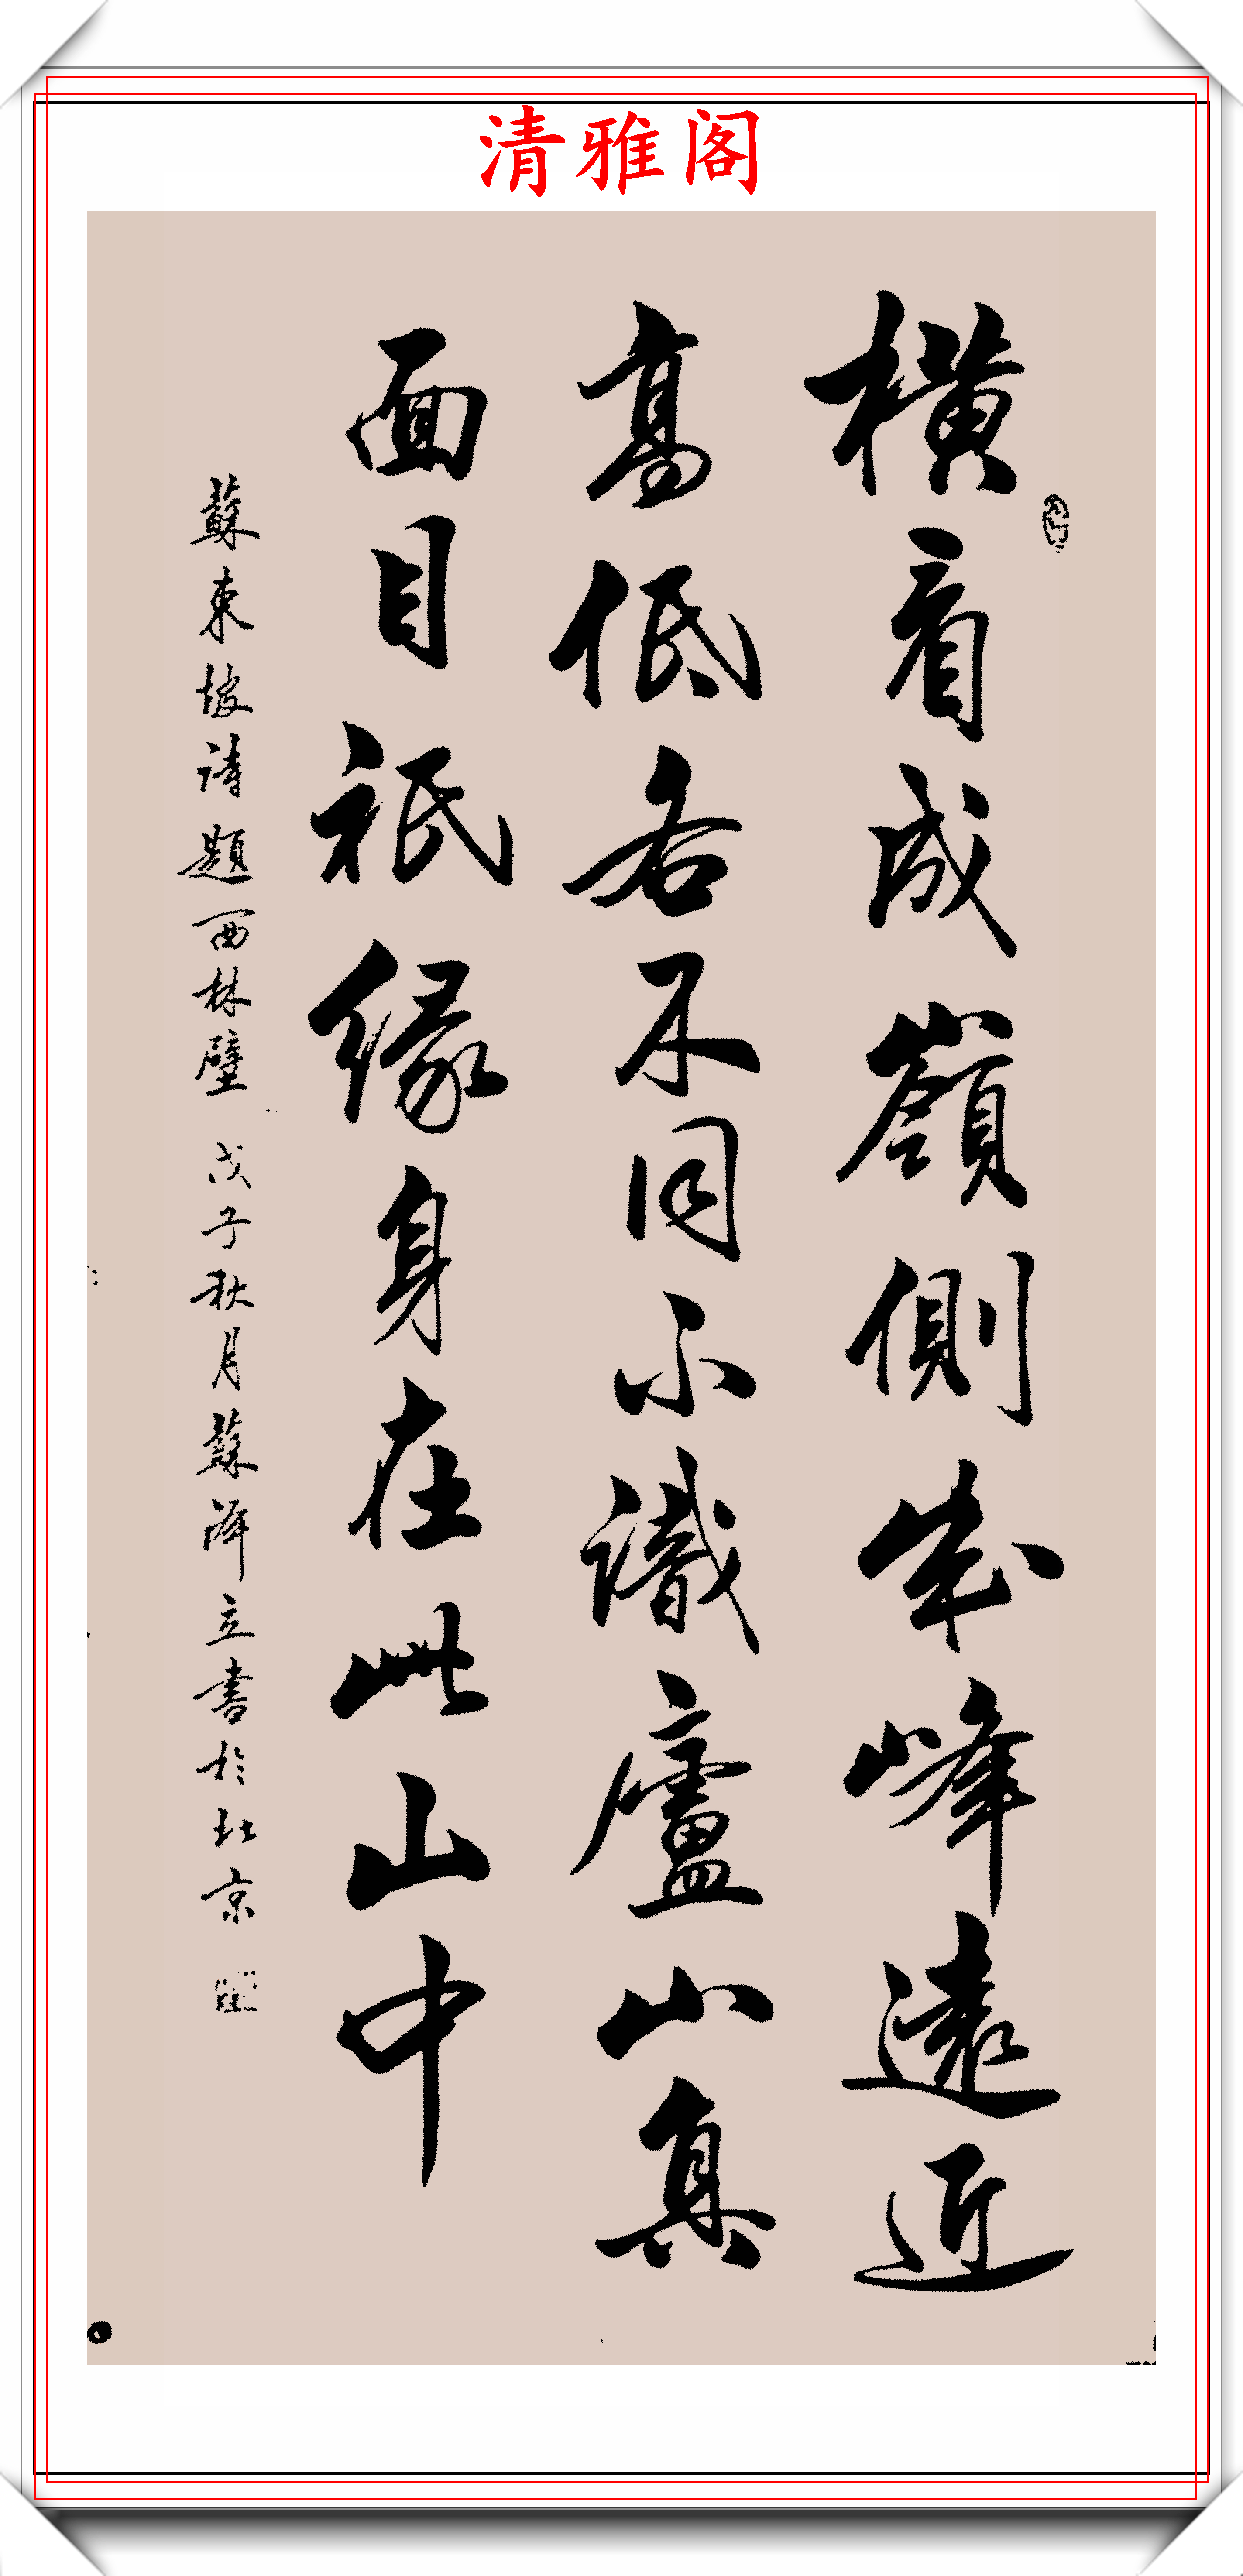 清雅阁
橫看成嶺側成峰遠近
高低各不同不識廬山真
面目衹緣身在此山中
蘇東坡詩題西林壁 戊子秋月蘇澤立書於北京